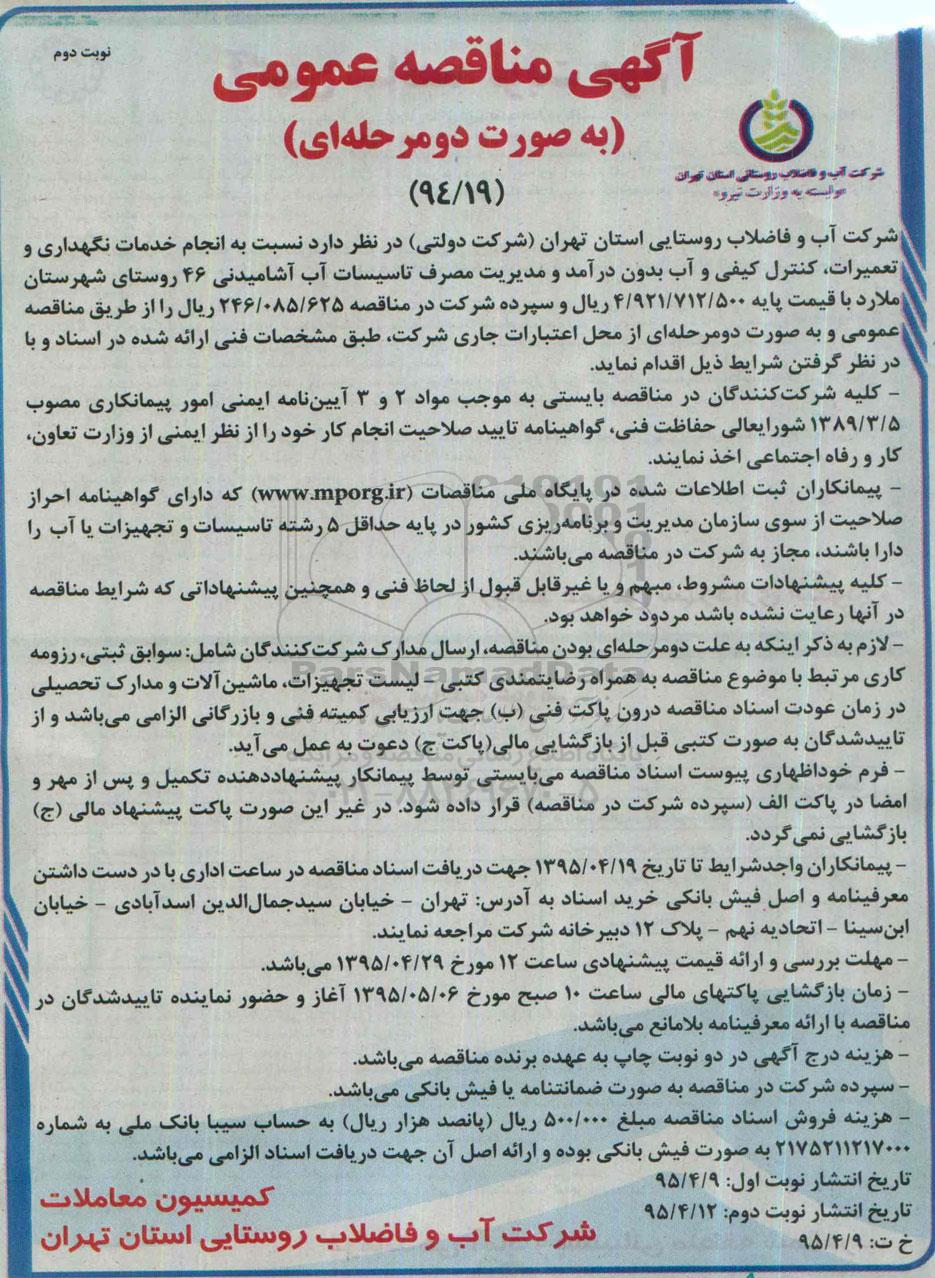 نوبت دوم
آگهی مناقصه عمومی
(به صورت دومرحله‌ای)
(۹٤/۱۹)
شرکت آب و فاضلاب روستایی استان تهران
«وابسته به وزارت نیرو»
شرکت آب و فاضلاب روستایی استان تهران (شرکت دولتی) در نظر دارد نسبت به انجام خدمات نگهداری و
تعمیرات، کنترل کیفی و آب بدون درآمد و مدیریت مصرف تاسیسات آب آشامیدنی ۴۶ روستای شهرستان
ملارد با قیمت پایه ۴/۹۲۱/۷۱۲/۵۰۰ ریال و سپرده شرکت در مناقصه ۲۴۶/۰۸۵/۶۲۵ ریال را از طریق مناقصه
عمومی و به صورت دومرحله‌ای از محل اعتبارات جاری شرکت، طبق مشخصات فنی ارائه شده در اسناد و با
در نظر گرفتن شرایط ذیل اقدام نماید.
- کلیه شرکت‌کنندگان در مناقصه بایستی به موجب مواد ۲ و ۳ آیین‌نامه ایمنی امور پیمانکاری مصوب
۱۳۸۹/۳/۵ شورایعالی حفاظت فنی، گواهینامه تایید صلاحیت انجام کار خود را از نظر ایمنی از وزارت تعاون،
کار و رفاه اجتماعی اخذ نمایند.
- پیمانکاران ثبت اطلاعات شده در پایگاه ملی مناقصات (www.mporg.ir) که دارای گواهینامه احراز
صلاحیت از سوی سازمان مدیریت و برنامه‌ریزی کشور در پایه حداقل ۵ رشته تاسیسات و تجهیزات یا آب را
دارا باشند، مجاز به شرکت در مناقصه می‌باشند.
- کلیه پیشنهادات مشروط، مبهم و یا غیرقابل قبول از لحاظ فنی و همچنین پیشنهاداتی که شرایط مناقصه
در آنها رعایت نشده باشد مردود خواهد بود.
- لازم به ذکر اینکه به علت دومرحله‌ای بودن مناقصه، ارسال مدارک شرکت‌کنندگان شامل: سوابق ثبتی، رزومه
کاری مرتبط با موضوع مناقصه به همراه رضایتمندی کتبی - لیست تجهیزات، ماشین‌آلات و مدارک تحصیلی
در زمان عودت اسناد مناقصه درون پاکت فنی (ب) جهت ارزیابی کمیته فنی و بازرگانی الزامی می‌باشد و از
تاییدشدگان به صورت کتبی قبل از بازگشایی مالی(پاکت ج) دعوت به عمل می‌آید.
- فرم خوداظهاری پیوست اسناد مناقصه می‌بایستی توسط پیمانکار پیشنهاددهنده تکمیل و پس از مهر و
امضا در پاکت الف (سپرده شرکت در مناقصه) قرار داده شود. در غیر این صورت پاکت پیشنهاد مالی (ج)
بازگشایی نمی‌گردد.
- پیمانکاران واجدشرایط تا تاریخ ۱۳۹۵/۰۴/۱۹ جهت دریافت اسناد مناقصه در ساعت اداری با در دست داشتن
معرفینامه و اصل فیش بانکی خرید اسناد به آدرس: تهران - خیابان سیدجمال‌الدین اسدآبادی - خیابان
ابن‌سینا - اتحادیه نهم - پلاک ۱۲ دبیرخانه شرکت مراجعه نمایند.
- مهلت بررسی و ارائه قیمت پیشنهادی ساعت ۱۲ مورخ ۱۳۹۵/۰۴/۲۹ می‌باشد.
- زمان بازگشایی پاکتهای مالی ساعت ۱۰ صبح مورخ ۱۳۹۵/۰۵/۰۶ آغاز و حضور نماینده تاییدشدگان در
مناقصه با ارائه معرفینامه بلامانع می‌باشد.
- هزینه درج آگهی در دو نوبت چاپ به عهده برنده مناقصه می‌باشد.
- سپرده شرکت در مناقصه به صورت ضمانتنامه یا فیش بانکی می‌باشد.
- هزینه فروش اسناد مناقصه مبلغ ۵۰۰/۰۰۰ ریال (پانصد هزار ریال) به حساب سیبا بانک ملی به شماره
۲۱۷۵۲۱۱۲۱۷۰۰۰ به صورت فیش بانکی بوده و ارائه اصل آن جهت دریافت اسناد الزامی می‌باشد.
تاریخ انتشار نوبت اول: ۹۵/۴/۹
تاریخ انتشار نوبت دوم: ۹۵/۴/۱۲
خ ت: ۹۵/۴/۹
کمیسیون معاملات
شرکت آب و فاضلاب روستایی استان تهران
ParsNamadData